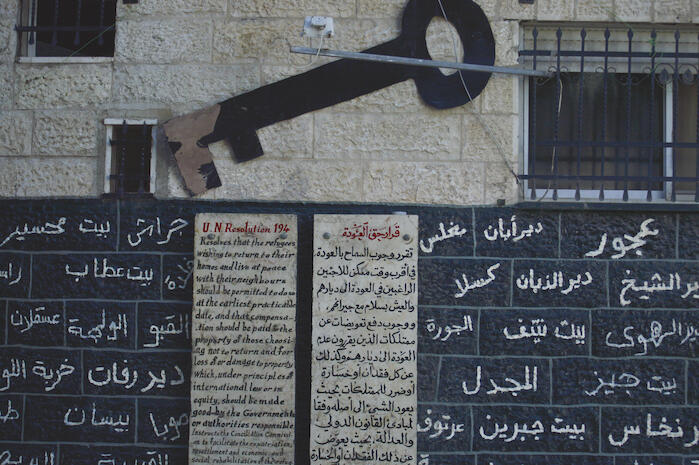 حراش بيت محسير
بيت عطاب
القبو الولجة عسقلان
دير رفات خربة اللو
بيسان
U.N Resolution 194
Resolves that the refugees
wishing to return to their
homes and live at peace
with their neighbours
should be permitted to do so
at the earliest practicable
date, and that compensa-
tion should be paid for the
property of those choosi-
ng not to return and for
loss of or damage to property
which, under principles of
international law or in
equity, should be made
good by the Governments
or authorities responsible
Instructs the Conciliation Commissi-
on to facilitate the repatriation,
resettlement and economic and
social rehabilitation of the
قرار حق العودة
تقرر وجوب السماح بالعودة
في اقرب وقت ممكن للاجئين
الراغبين في العودة الى ديارهم
والعيش بسلام مع جيرانهم
ووجوب دفع تعويضات عن
ممتلكات الذين يقررون عدم
العودة الى ديارهم وكذلك
عن كل فقدان أو خسارة
أو ضرر للممتلكات بحيث
يعود الشيء إلى أصله وفقا
لمبادئ القانون الدولي
والعدالة، بحيث يعوض
عن ذلك الفقدان او الخسارة
عجور دير أبان مغلس
دير الشيخ دير الذبان كسلا
دير الهوى بيت نتيف الجورة
بيت جيز المجدل
بيت جبرين عرتوف